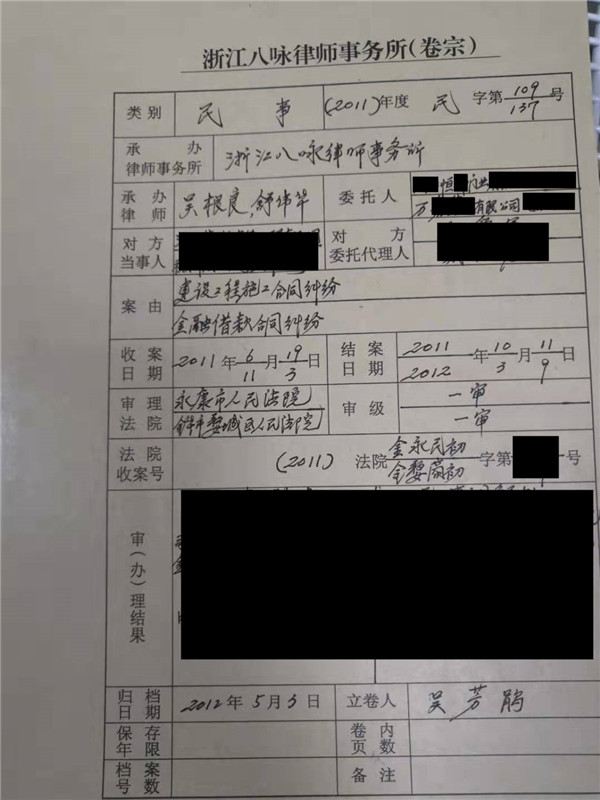 浙江八咏律师事务所(卷宗)
类别 民 事 (2011)年度 民 字第 109 137 号
承办律师事务所 浙江八咏律师事务所
承办律师 吴根良 舒伟华 委托人 恒 门业
万 有限公司
对方当事人 对方委托代理人
案由 建设工程施工合同纠纷
金融借款合同纠纷
收案日期 2011年 6 11 月 19 3 日 结案日期 2011 2012 年 10 3 月 11 9 日
审理法院 永康市人民法院 审级 一审
金华市婺城区人民法院 一审
法院收案号 (2011) 法院 金永民初 字第 号
审(办)理结果
归档日期 2012年5月3日 立卷人 吴芳鹃
保存年限 卷内页数
档案号数 备注